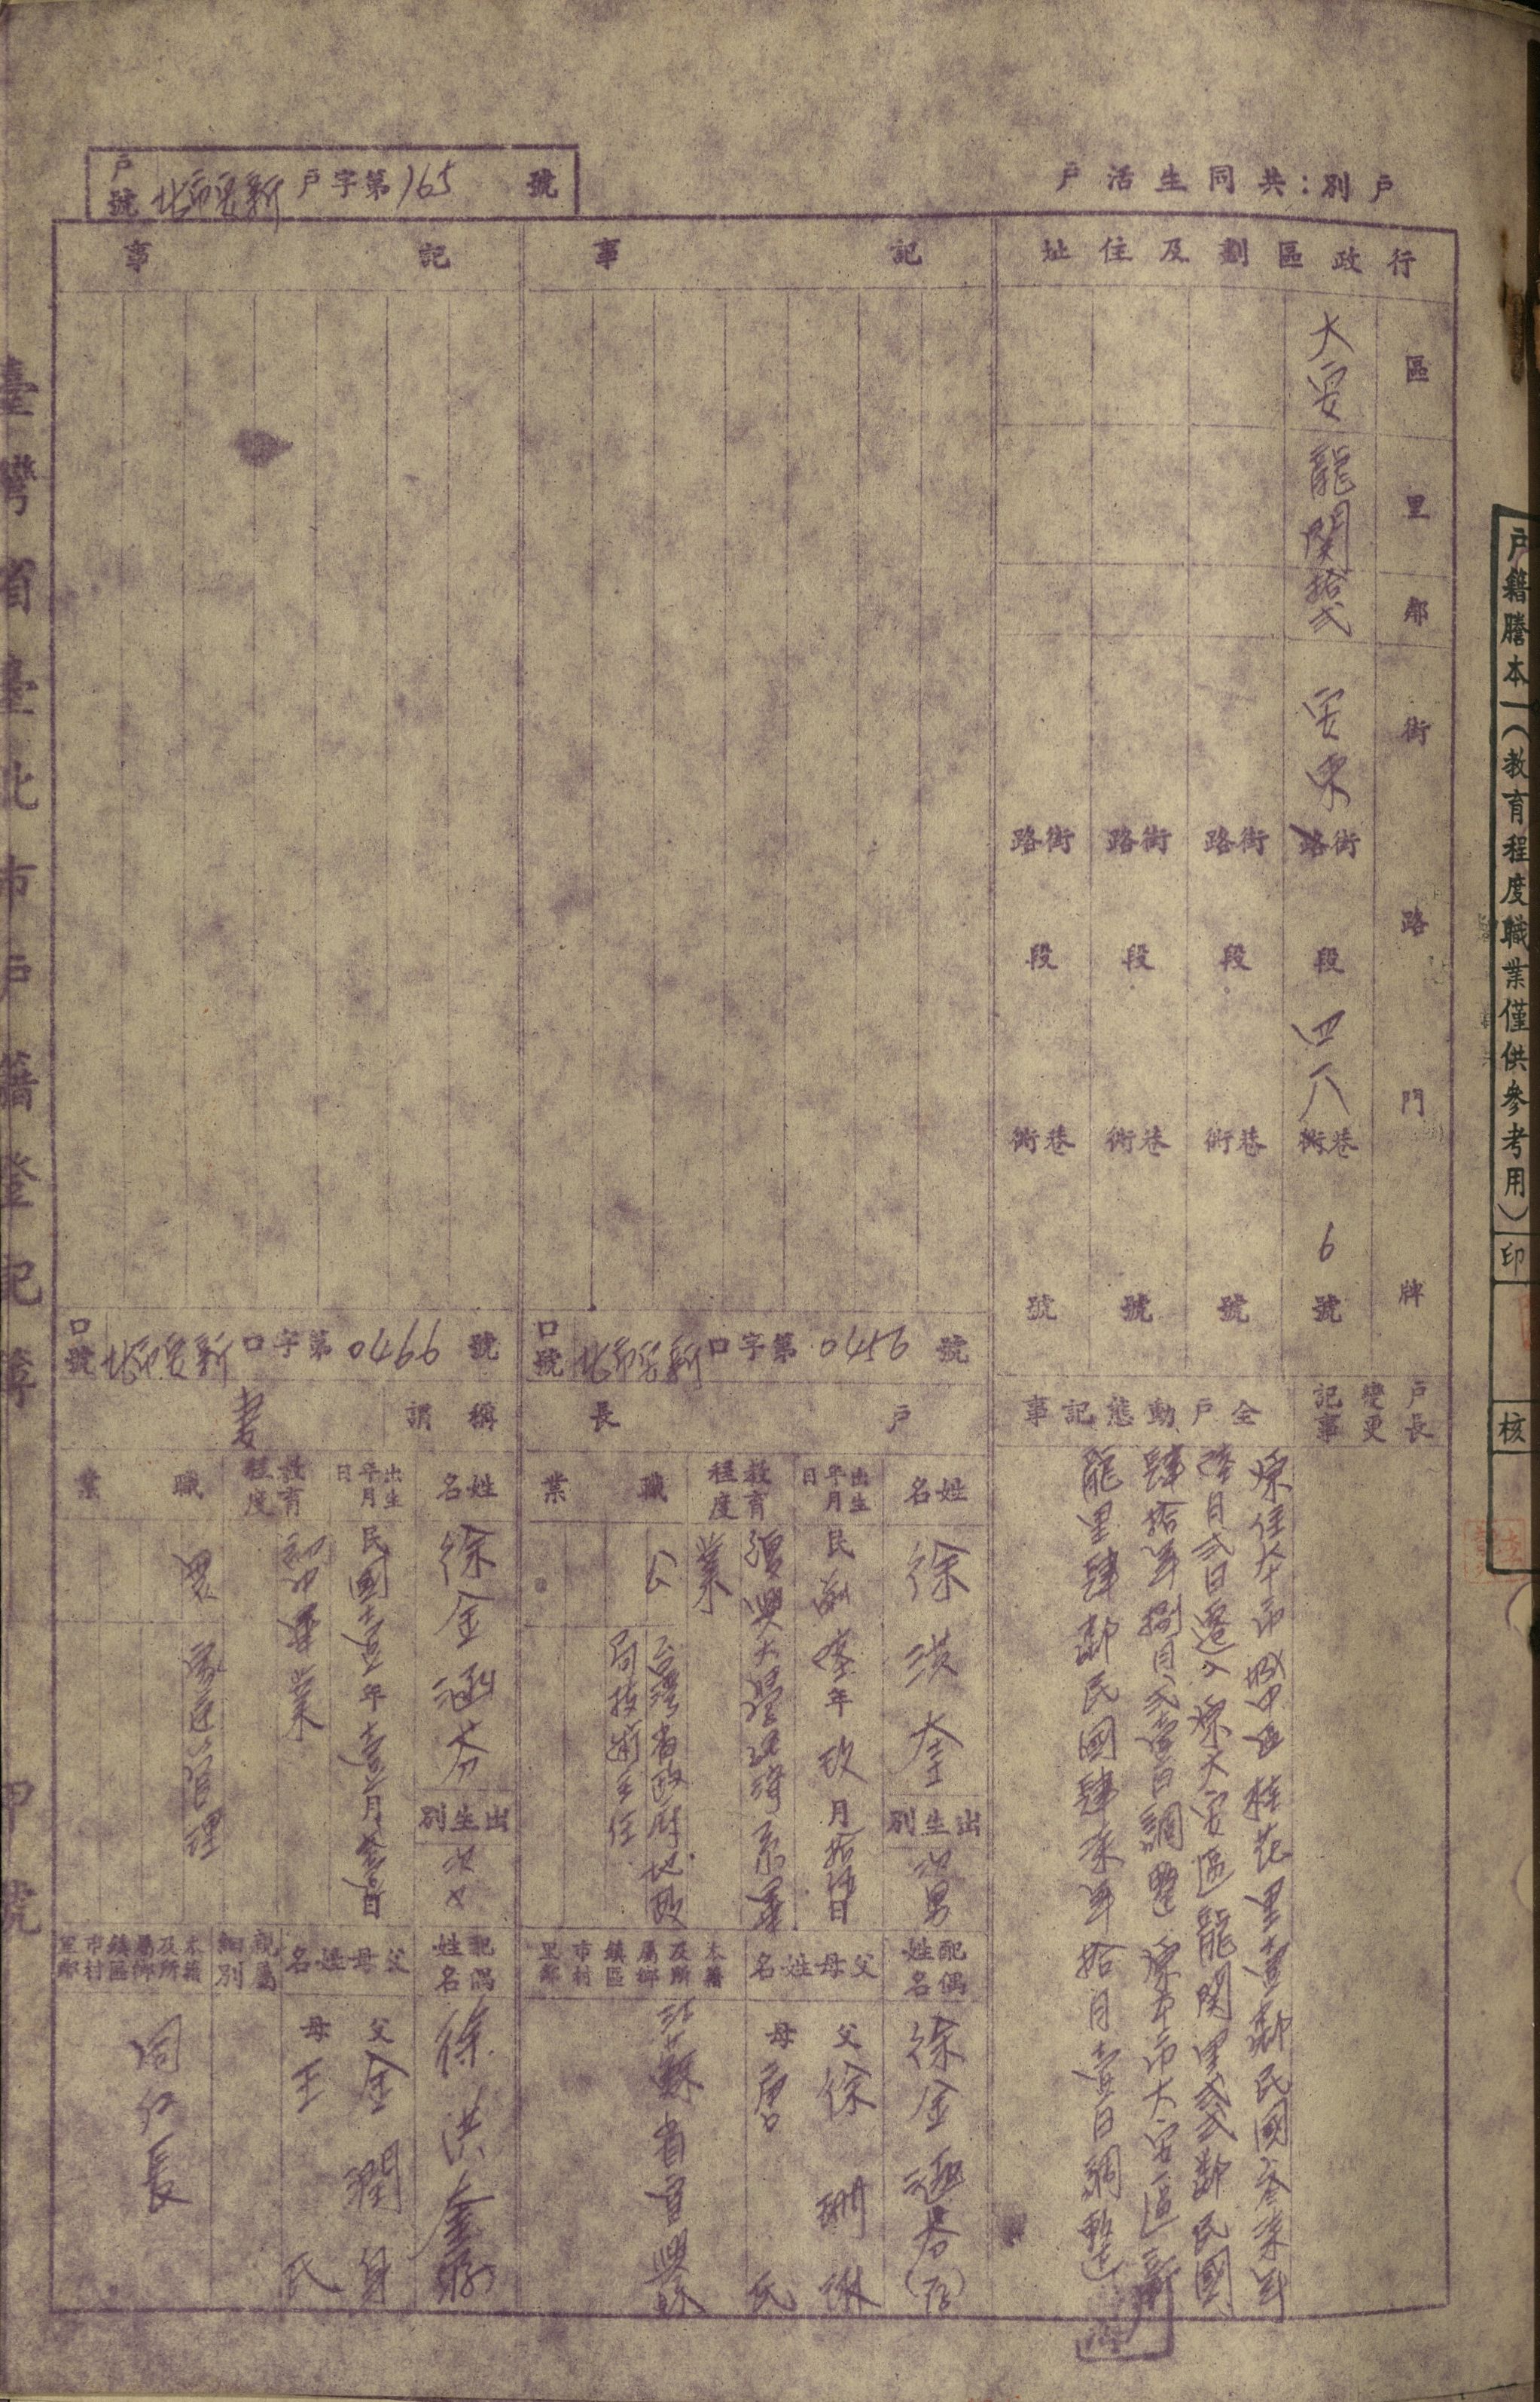 戶籍謄本(一)(教育程度職業僅供參考用)
印
核
戶別:共同生活戶
戶號 北市安新 戶字第165號
行政區劃及住址
區 里 鄰 街路門牌
大安 龍關 拾弍 安東街 段 四八巷 6號
街路 段 巷衖 號
街路 段 巷衖 號
街路 段 巷衖 號
戶長變更記事
全戶動態記事
原住本市城中區桂花里壹鄰民國叁柒年
陸月弍日遷入原大安區龍關里弍弍鄰民國
肆拾年捌月弍壹日調整原本市大安區新
龍里肆鄰民國肆柒年拾月壹日調整
記事
口號 北市安新 口字第0456號
戶長
姓名 徐洪奎
出生別
男
出生年月日 民國 年玖月拾 日
教育程度 復興大學 系畢業
職業 公
台灣省政府地政
局技術主任
配偶姓名 徐金涵芬(存)
父母姓名
父 徐珊琳
母 唐氏
本籍及所屬鄉鎮區市村里鄰
江蘇省宜興縣
記事
口號 北市安新 口字第0466號
稱謂 妻
姓名 徐金涵芬
出生別
女
出生年月日 民國壹 年壹 月 日
教育程度 初中畢業
職業 家庭管理
配偶姓名 徐洪奎
父母姓名
父 金潤身
母 王氏
親屬細別
本籍及所屬鄉鎮區市村里鄰
同戶長
臺灣省臺北市戶籍登記簿 甲號